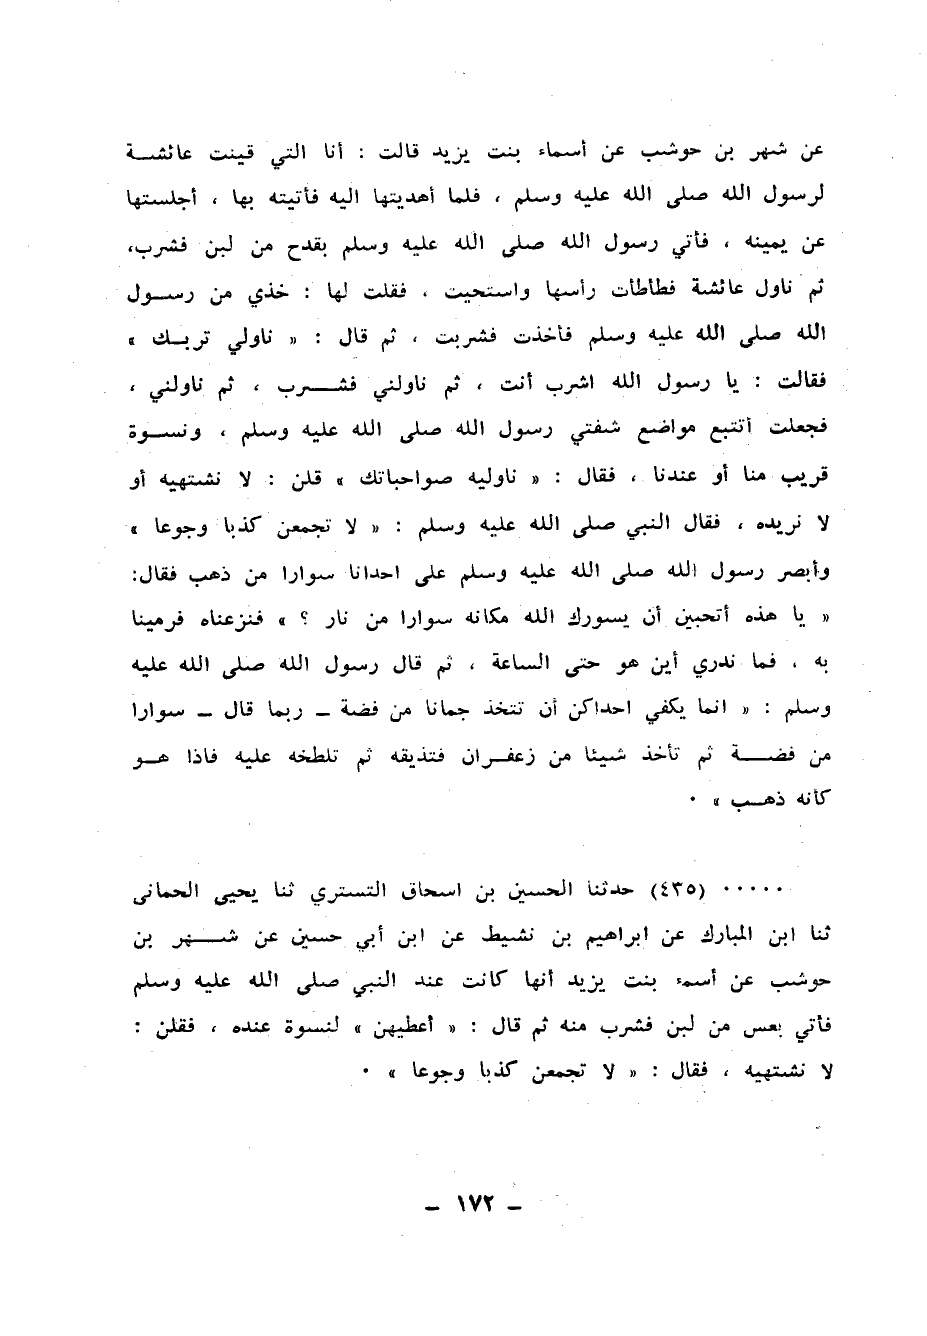 عن شهر بن حوشب عن أسماء بنت يزيد قالت : أنا التي قينت عائشة
لرسول الله صلى الله عليه وسلم ، فلما أهديتها اليه فأتيته بها ، أجلستها
عن يمينه ، فأتي رسول الله صلى الله عليه وسلم بقدح من لبن فشرب،
ثم ناول عائشة فطاطات رأسها واستحيت ، فقلت لها : خذي من رسول
الله صلى الله عليه وسلم فأخذت فشربت ، ثم قال : « ناولي تربك »
فقالت : يا رسول الله اشرب أنت ، ثم ناولني فشرب ، ثم ناولني ،
فجعلت أتتبع مواضع شفتي رسول الله صلى الله عليه وسلم ، ونسوة
قريب منا أو عندنا ، فقال : « ناوليه صواحباتك » قلن : لا نشتهيه أو
لا نريده ، فقال النبي صلى الله عليه وسلم : « لا تجمعن كذبا وجوعا »
وأبصر رسول الله صلى الله عليه وسلم على احدانا سوارا من ذهب فقال:
« يا هذه أتحبين أن يسورك الله مكانه سوارا من نار ؟ » فنزعناه فرمينا
به ، فما ندري أين هو حتى الساعة ، ثم قال رسول الله صلى الله عليه
وسلم : « انما يكفي احداكن أن تتخذ جمانا من فضة ـ ربما قال ـ سوارا
من فضة ثم تأخذ شيئا من زعفران فتذيقه ثم تلطخه عليه فاذا هو
كأنه ذهب » ٠
٠٠٠٠٠ (٤٣٥) حدثنا الحسين بن اسحاق التستري ثنا يحيى الحمانى
ثنا ابن المبارك عن ابراهيم بن نشيط عن ابن أبي حسين عن شهر بن
حوشب عن أسماء بنت يزيد أنها كانت عند النبي صلى الله عليه وسلم
فأتي بعس من لبن فشرب منه ثم قال : « أعطيهن » لنسوة عنده ، فقلن :
لا نشتهيه ، فقال : « لا تجمعن كذبا وجوعا » ٠
ـ ١٧٢ ـ